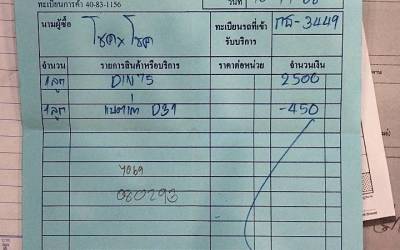 ทะเบียนการค้า 40-83-1156 วันที่
นามผู้ซื้อ โชค x โชค ทะเบียนรถที่เข้ารับบริการ 3449
จำนวน รายการสินค้าหรือบริการ ราคาต่อหน่วย จำนวนเงิน
1 ลูก DIN 75 2500
1 ลูก D31 -450
4069
080293